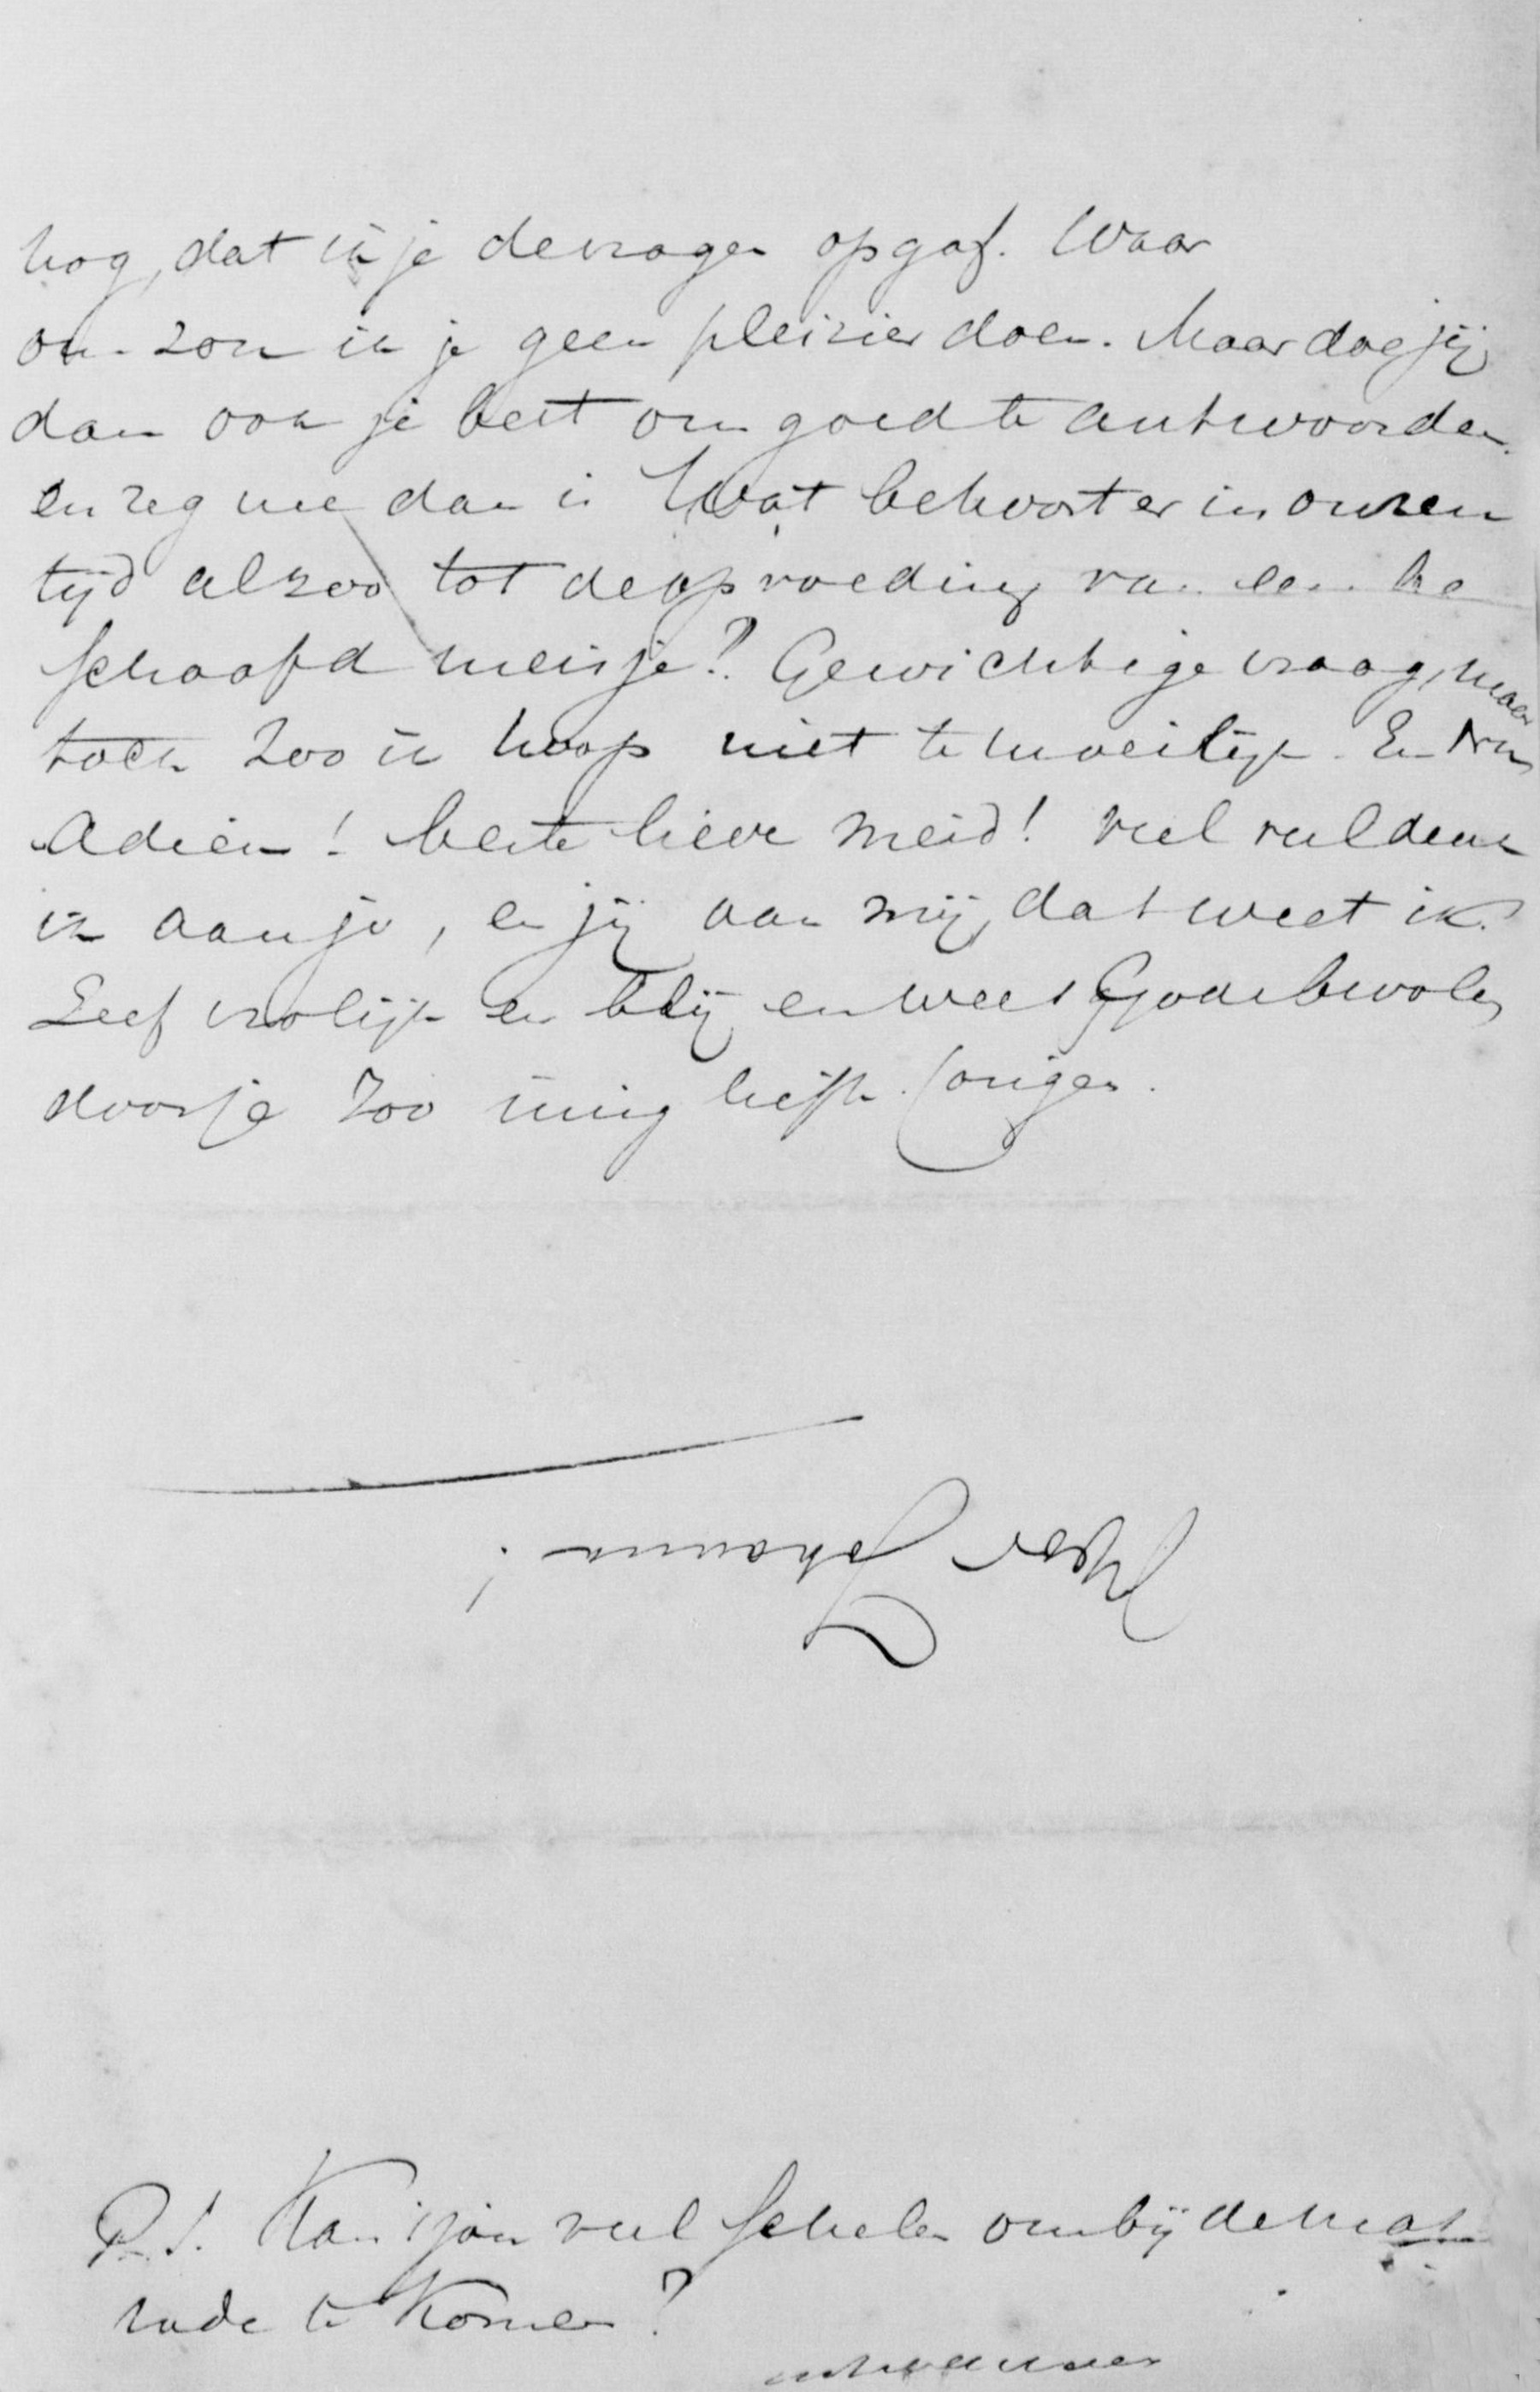 nog, dat ik je de vragen opgaf. Waar
om zou ik je geen pleizier doen. Maar doe jij
dan ook je best om goed te antwoorden.
en zeg me dan is Wat behoort er in onzen
tijd alzoo tot de opvoeding van een be
schaafd meisje? Gewichtige vraag, maar
toch zoo ik hoop niet te moeilijk. En nu
Adieu! beste lieve meid! veel veel denk
ik aan je, en jij aan mij, dat weet ik.
Leef vrolijk en blij en wees Gode bevolen
door je zoo innig liefh. jongen.
Voor Johanna!
P.S. Kan 't jou veel schelen om bij de
rude te komen?